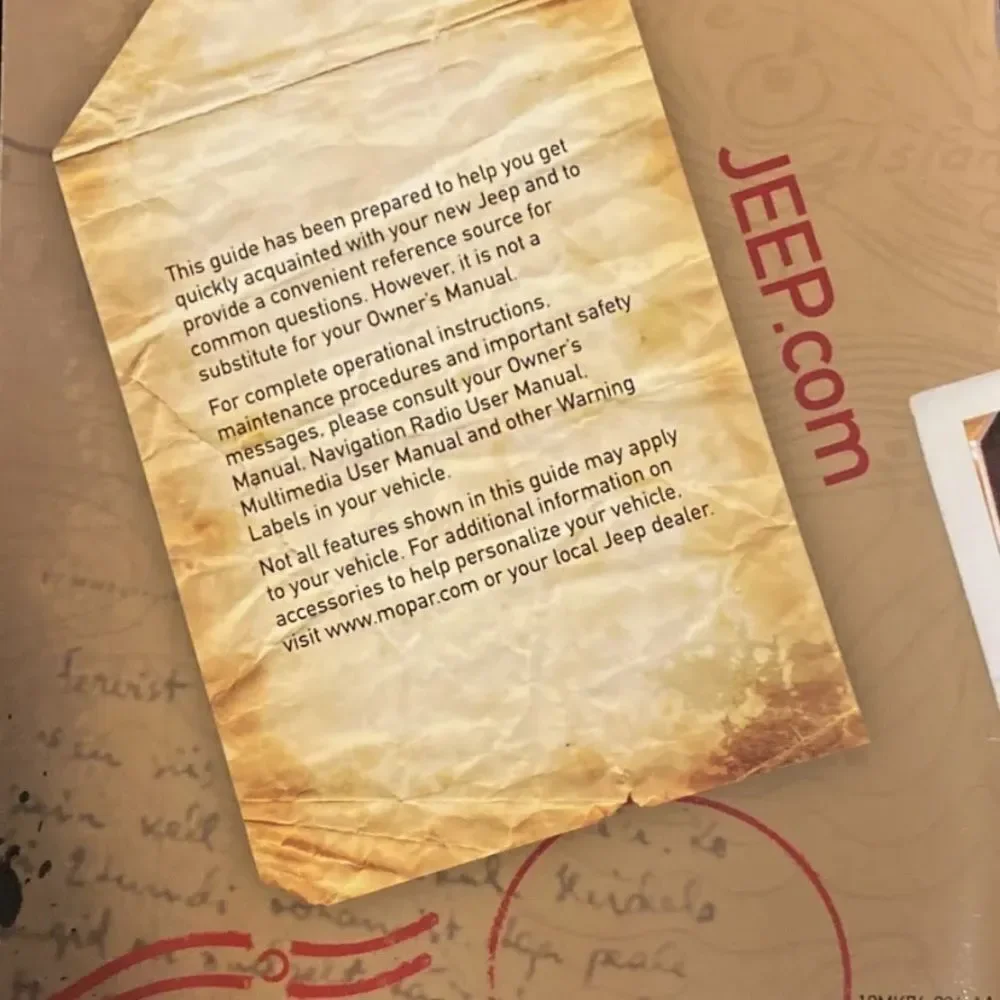 This guide has been prepared to help you get
quickly acquainted with your new Jeep and to
provide a convenient reference source for
common questions. However, it is not a
substitute for your Owner's Manual.
For complete operational instructions,
maintenance procedures and important safety
messages, please consult your Owner's
Manual, Navigation Radio User Manual,
Multimedia User Manual and other Warning
Labels in your vehicle.
Not all features shown in this guide may apply
to your vehicle. For additional information on
accessories to help personalize your vehicle,
visit www.mopar.com or your local Jeep dealer.
JEEP.com